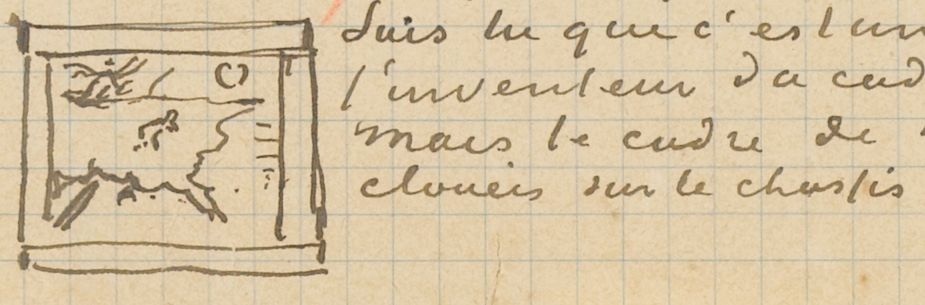 Sais tu que c'est un
l'inventeur du cad
mais le cadre de
cloués sur le chassis